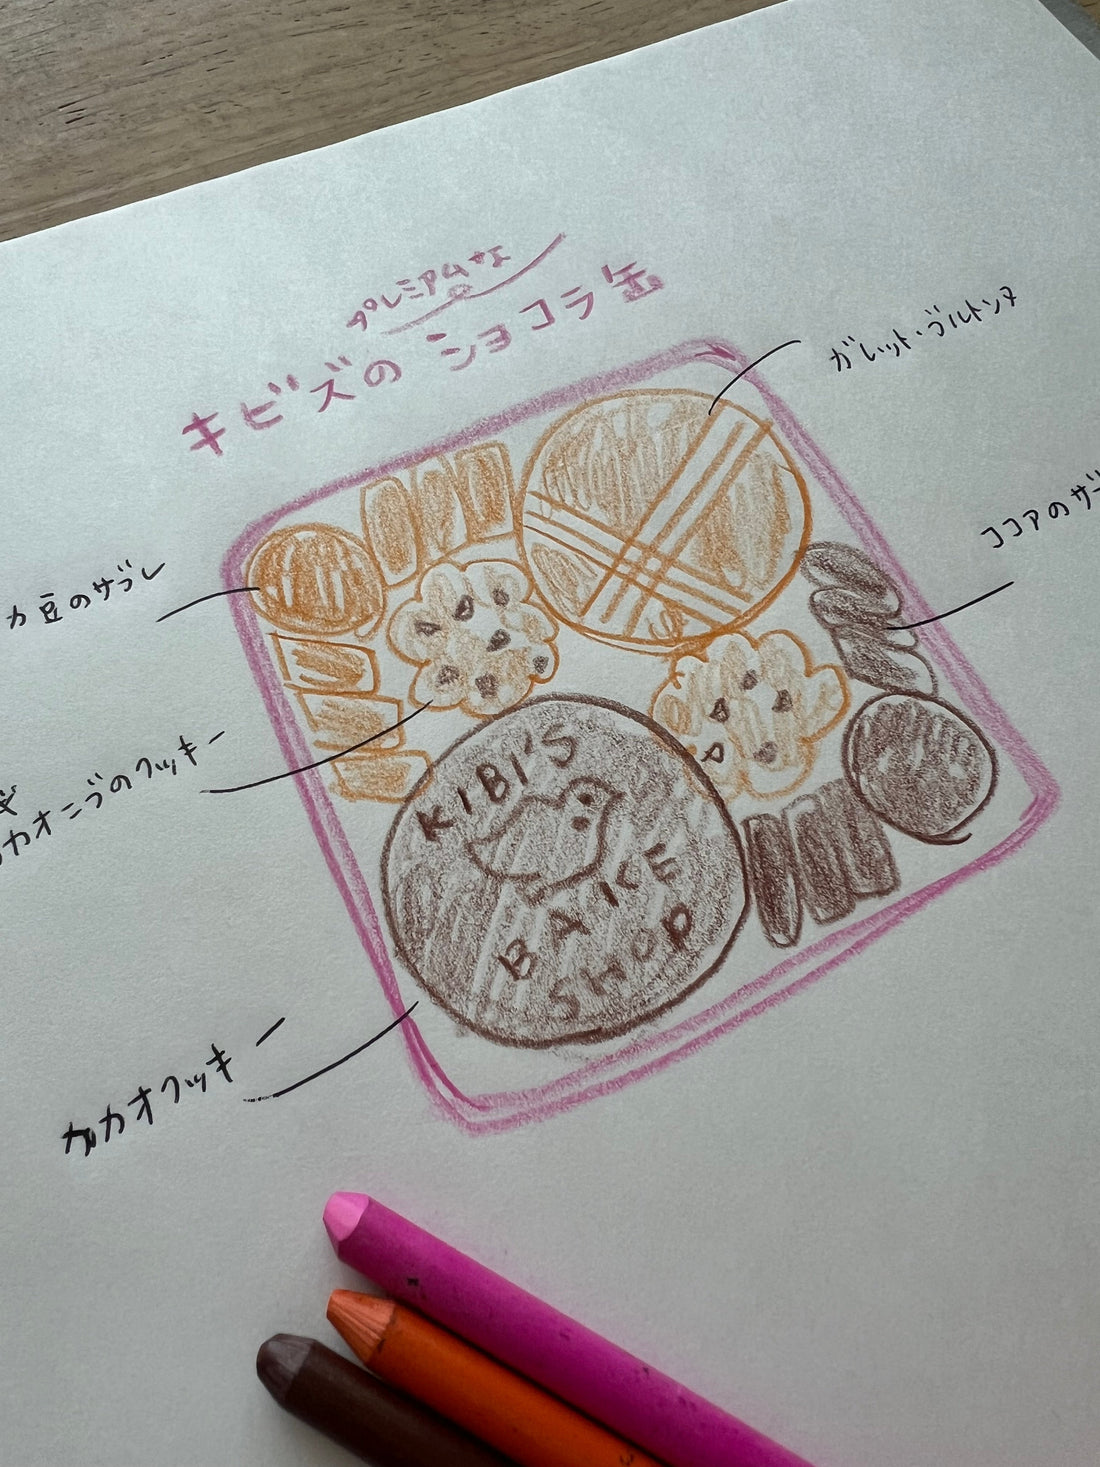 プレミアムな
キビズの ショコラ缶
ガレット・ブルトンヌ
ココアのサブ
カ豆のサブレ
カオニブのクッキー
カカオクッキー
KIBI'S
BAKE
SHOP